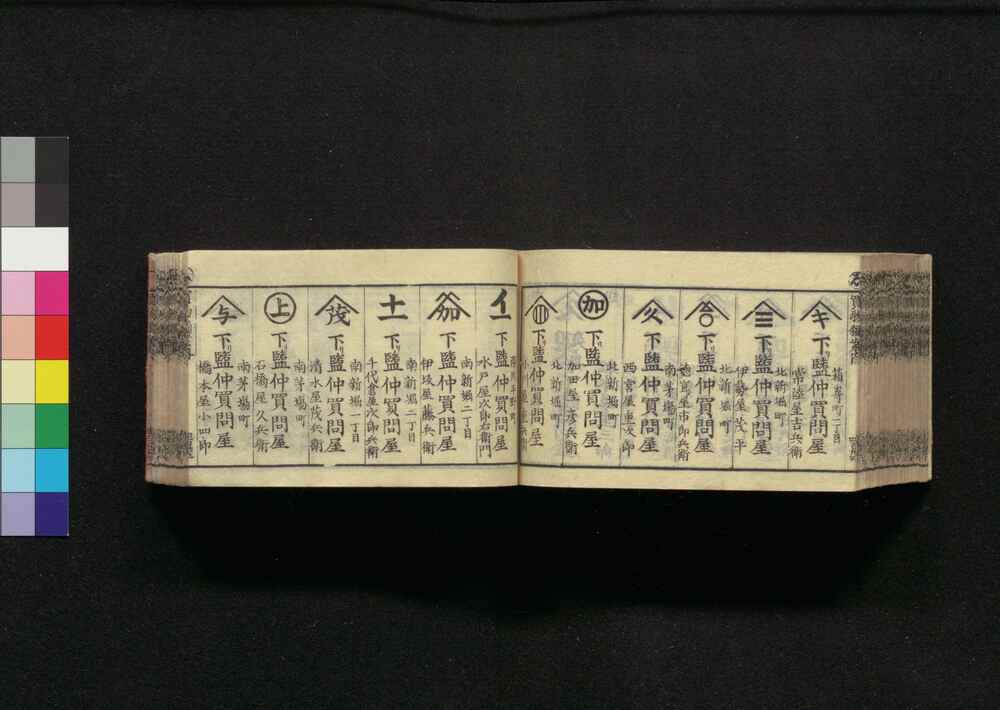 キ
下り塩仲買問屋
箱崎町二丁目
常陸屋吉兵衛
三
下り塩仲買問屋
北新堀町
伊勢屋茂平
合
下り塩仲買問屋
北新堀町
徳島屋市郎兵衛
久
下り塩仲買問屋
南茅場町
西宮屋重次郎
加
下り塩仲買問屋
北新堀町
加田屋彦兵衛
下り塩仲買問屋
北新堀町
イ
下り塩仲買問屋
水戸屋次郎右衛門
加
下り塩仲買問屋
南新堀二丁目
伊坂屋藤兵衛
土
下り塩仲買問屋
南新堀二丁目
千代倉屋次郎兵衛
茂
下り塩仲買問屋
南新堀一丁目
清水屋茂兵衛
上
下り塩仲買問屋
南茅場町
石橋屋久兵衛
与
下り塩仲買問屋
南茅場町
橋本屋小四郎